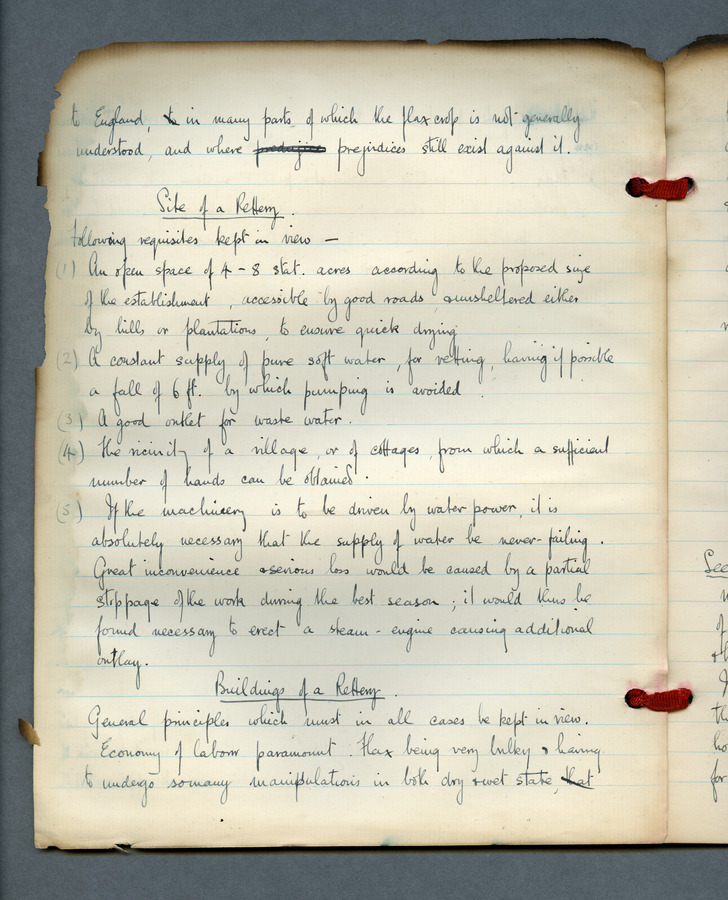 to England, to in many parts of which the flax crop is not generally
understood, and where prejudices still exist against it.
Site of a Rettery.
Following requisites kept in view —
(1) An open space of 4 - 8 stat. acres according to the proposed size
of the establishment, accessible by good roads & unsheltered either
by hills or plantations, to ensure quick drying
(2) A constant supply of pure soft water, for retting, having if possible
a fall of 6 ft. by which pumping is avoided.
(3) A good outlet for waste water.
(4) The vicinity of a village, or of cottages, from which a sufficient
number of hands can be obtained.
(5) If the machinery is to be driven by water power, it is
absolutely necessary that the supply of water be never-failing.
Great inconvenience & serious loss would be caused by a partial
stoppage of the work during the best season; it would thus be
found necessary to erect a steam-engine causing additional
outlay.
Buildings of a Rettery.
General principles which must in all cases be kept in view.
Economy of labour paramount. Flax being very bulky & having
to undergo so many manipulations in both dry & wet state, that